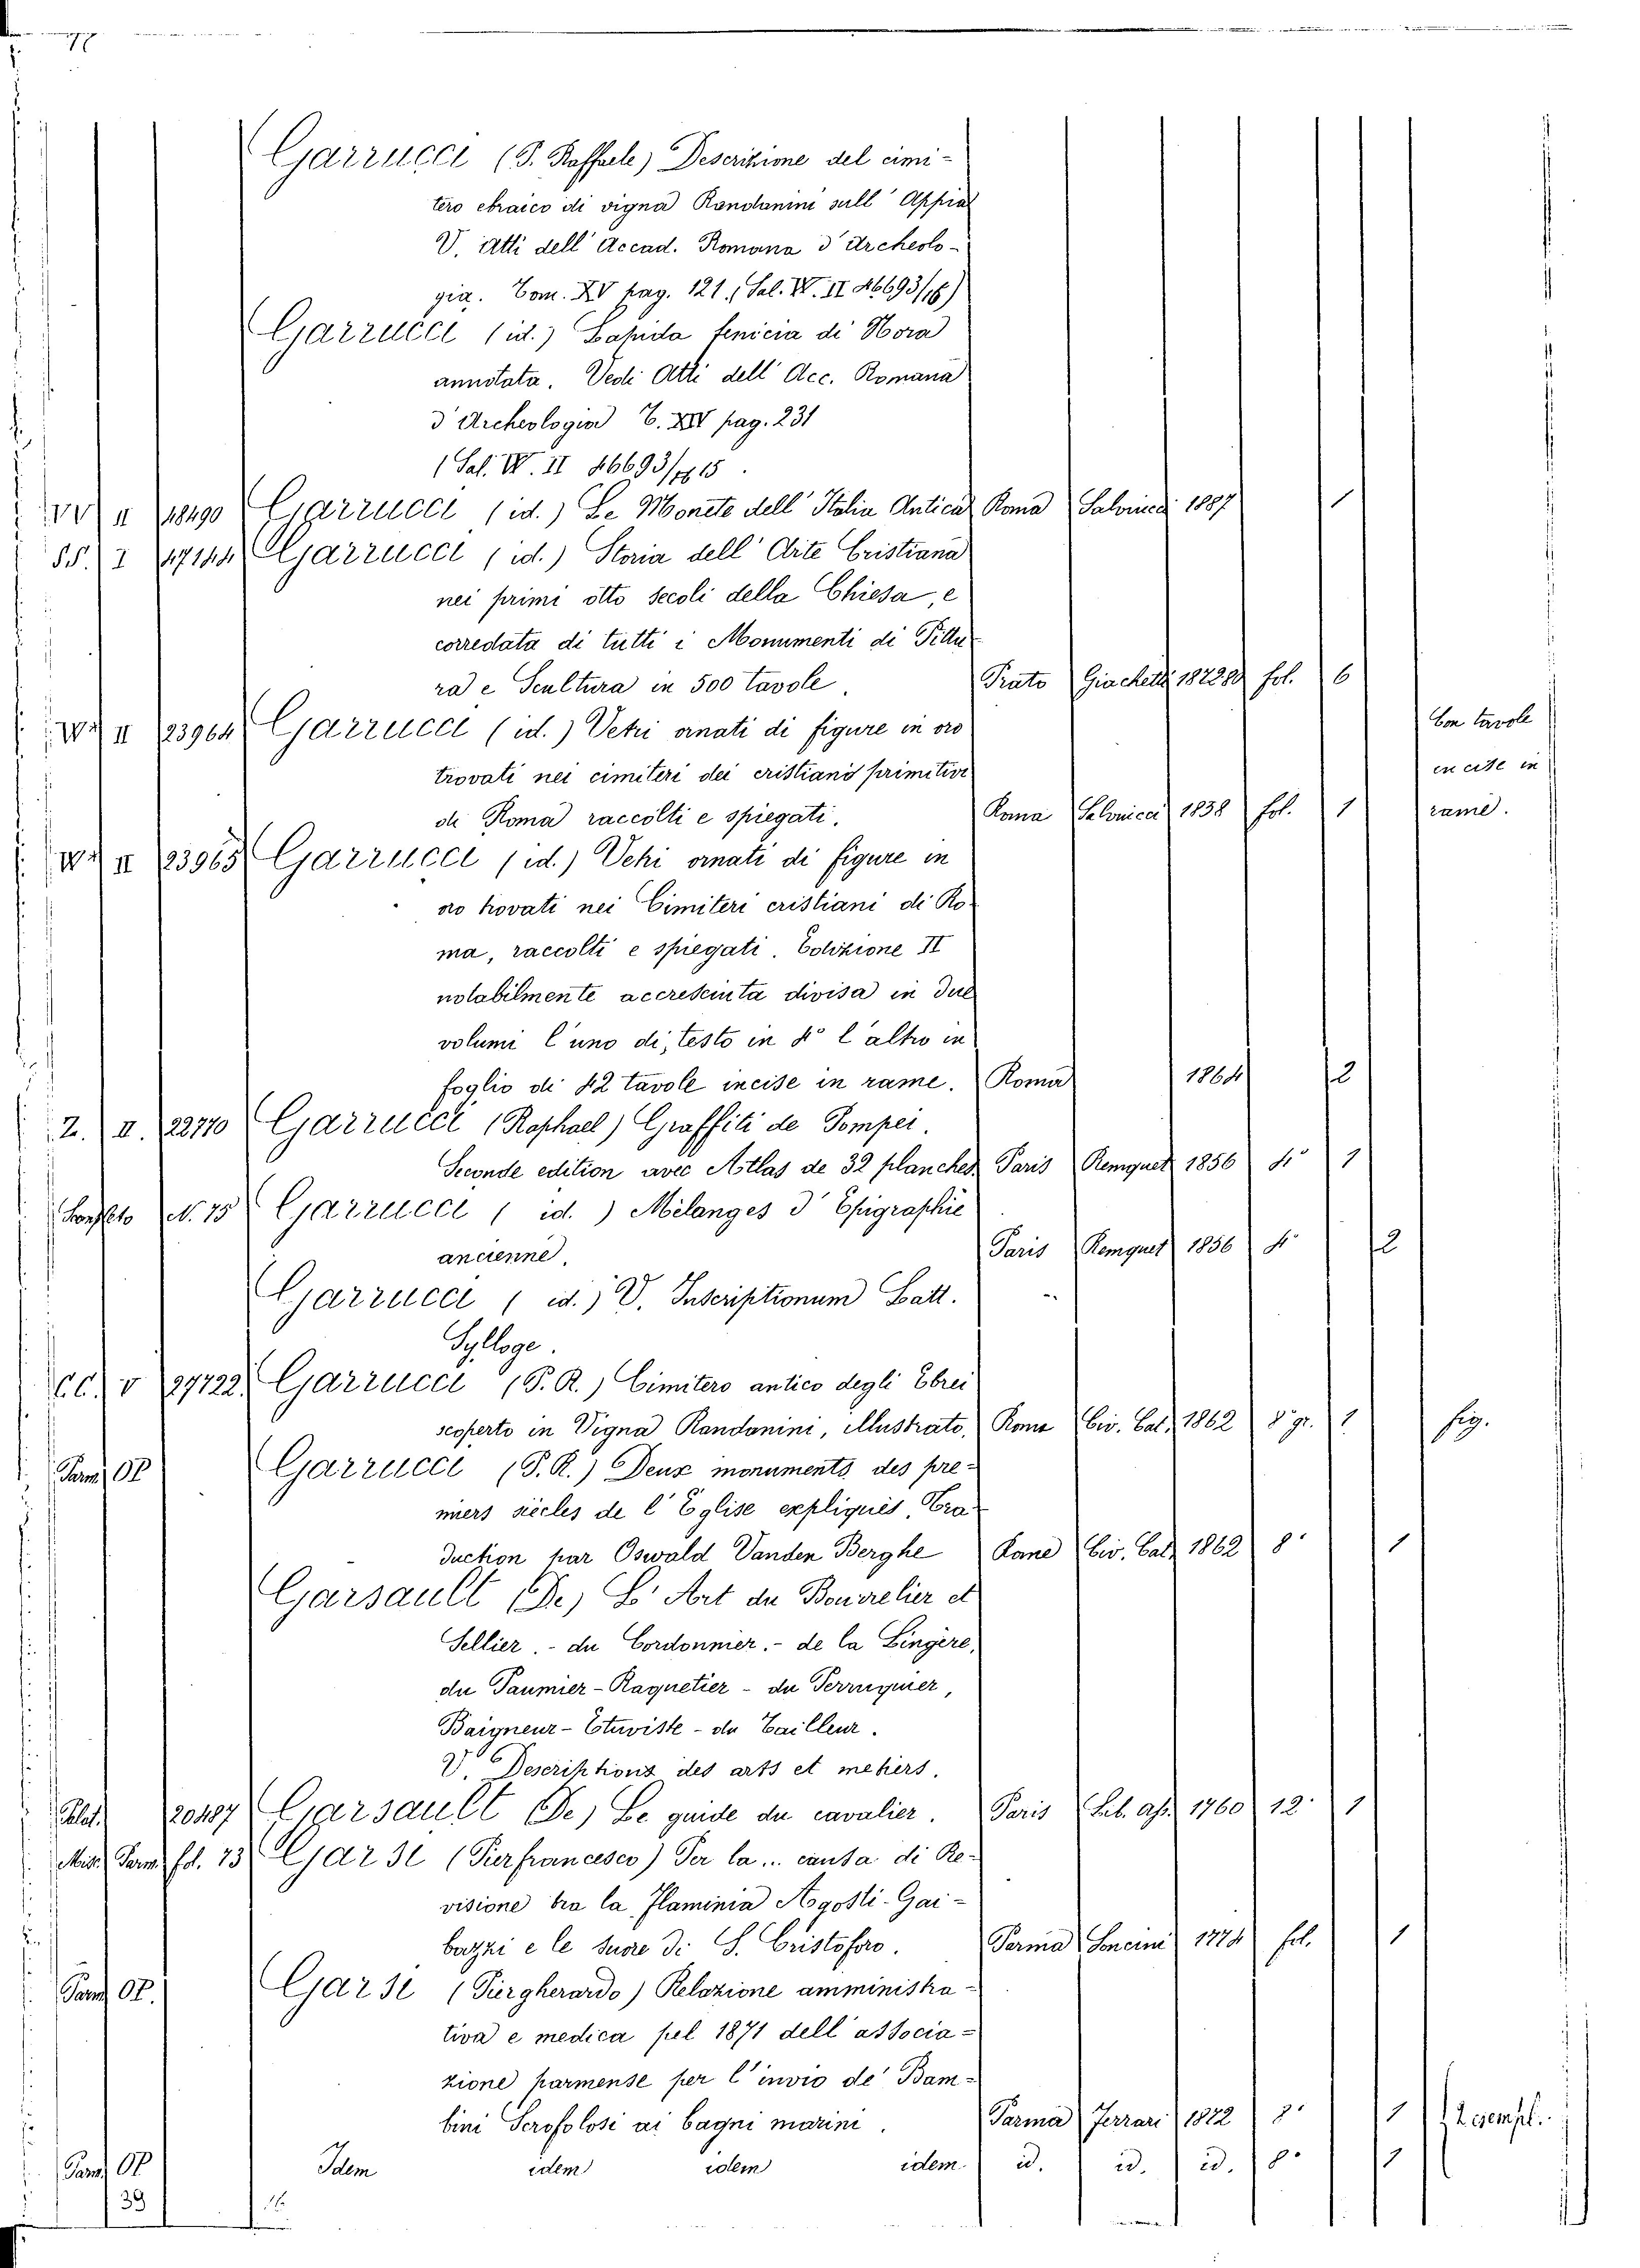 Garrucci (P. Raffaele) Descrizione del cimi-
tero ebraico di vigna Randanini sull' Appia
V. Atti dell' Accad. Romana d'Archeolo-
gia. Tom. XV pag. 121. (Sal. W. II 46693/16)
Garrucci (id.) Lapida fenicia di Nora
annotata. Vedi Atti dell' Acc. Romana
d'Archeologia T. XIV pag. 231
(Sal. W. II 46693/15.
VV II 18490 Garrucci (id.) Le Monete dell' Italia Antica Roma Salviucci 1887 1
SS. I 47144 Garrucci (id.) Storia dell' Arte Cristiana
nei primi otto secoli della Chiesa, e
corredata di tutti i Monumenti di Pittu
ra e Scultura in 500 tavole. Prato Giachetti 1872 fol. 6
W II 23964 Garrucci (id.) Vetri ornati di figure in oro
trovati nei cimiteri dei cristiani primitivi
di Roma raccolti e spiegati. Roma Salviucci 1858 fol. 1 Con tavole incise in rame.
W II 23965 Garrucci (id.) Vetri ornati di figure in
oro trovati nei Cimiteri cristiani di Ro-
ma, raccolti e spiegati. Edizione II
notabilmente accresciuta divisa in due
volumi l'uno di testo in 4° l'altro in
foglio di 42 tavole incise in rame. Roma 1864 2
Z. II. 22770 Garrucci (Raphael) Graffiti de Pompei.
Seconde edition avec Atlas de 32 planches Paris Remquet 1856 4° 1
N. 75 Garrucci (id.) Mélanges d'Epigraphie
ancienne. Paris Remquet 1856 4° 2
Garrucci (id.) V. Inscriptionum Latt.
Sylloge.
CC. V 27722. Garrucci (P. R.) Cimitero antico degli Ebrei
scoperto in Vigna Randanini, illustrato. Roma Civ. Cat. 1862 8° gr. 1 fig.
Parm. OP Garrucci (P. R.) Deux monuments des pre-
miers siècles de l'Eglise expliqués. Tra-
duction par Oswald Vanden Berghe Rome Civ. Cat. 1862 8° 1
Garsault (De) L'Art du Bourrelier et
Sellier. - du Cordonnier. - de la Lingère,
du Paumier-Raquetier - du Perruquier,
Baigneur-Etuviste - du Tailleur.
V. Descriptions des arts et metiers.
Palat. 20487 Garsault (De) Le guide du cavalier. Paris Lib. ass. 1760 12° 1
Misc. Parm. fol. 73 Garsi (Pierfrancesco) Per la ... causa di Re-
visione tra la Flaminia Agosti-Gai-
bazzi e le Suore di S. Cristoforo. Parma Soncini 1774 fol. 1
Parm. OP. Garsi (Piergherardo) Relazione amministra-
tiva e medica pel 1871 dell' associa-
zione parmense per l'invio de' Bam-
bini Scrofolosi ai bagni marini. Parma Ferrari 1872 8° 1 2 esempl.
Parm. OP Idem idem idem idem id. id. id. 8° 1
39